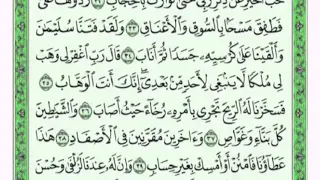 حُبَّ ٱلْخَيْرِ عَن ذِكْرِ رَبِّى حَتَّىٰ تَوَارَتْ بِٱلْحِجَابِ ٣٢ رُدُّوهَا عَلَىَّ
فَطَفِقَ مَسْحًۢا بِٱلسُّوقِ وَٱلْأَعْنَاقِ ٣٣ وَلَقَدْ فَتَنَّا سُلَيْمَٰنَ
وَأَلْقَيْنَا عَلَىٰ كُرْسِيِّهِۦ جَسَدًا ثُمَّ أَنَابَ ٣٤ قَالَ رَبِّ ٱغْفِرْ لِى وَهَبْ
لِى مُلْكًا لَّا يَنۢبَغِى لِأَحَدٍ مِّنۢ بَعْدِىٓ إِنَّكَ أَنتَ ٱلْوَهَّابُ ٣٥
فَسَخَّرْنَا لَهُ ٱلرِّيحَ تَجْرِى بِأَمْرِهِۦ رُخَآءً حَيْثُ أَصَابَ ٣٦ وَٱلشَّيَٰطِينَ
كُلَّ بَنَّآءٍ وَغَوَّاصٍ ٣٧ وَءَاخَرِينَ مُقَرَّنِينَ فِى ٱلْأَصْفَادِ ٣٨ هَٰذَا
عَطَآؤُنَا فَٱمْنُنْ أَوْ أَمْسِكْ بِغَيْرِ حِسَابٍ ٣٩ وَإِنَّ لَهُۥ عِندَنَا لَزُلْفَىٰ وَحُسْنَ